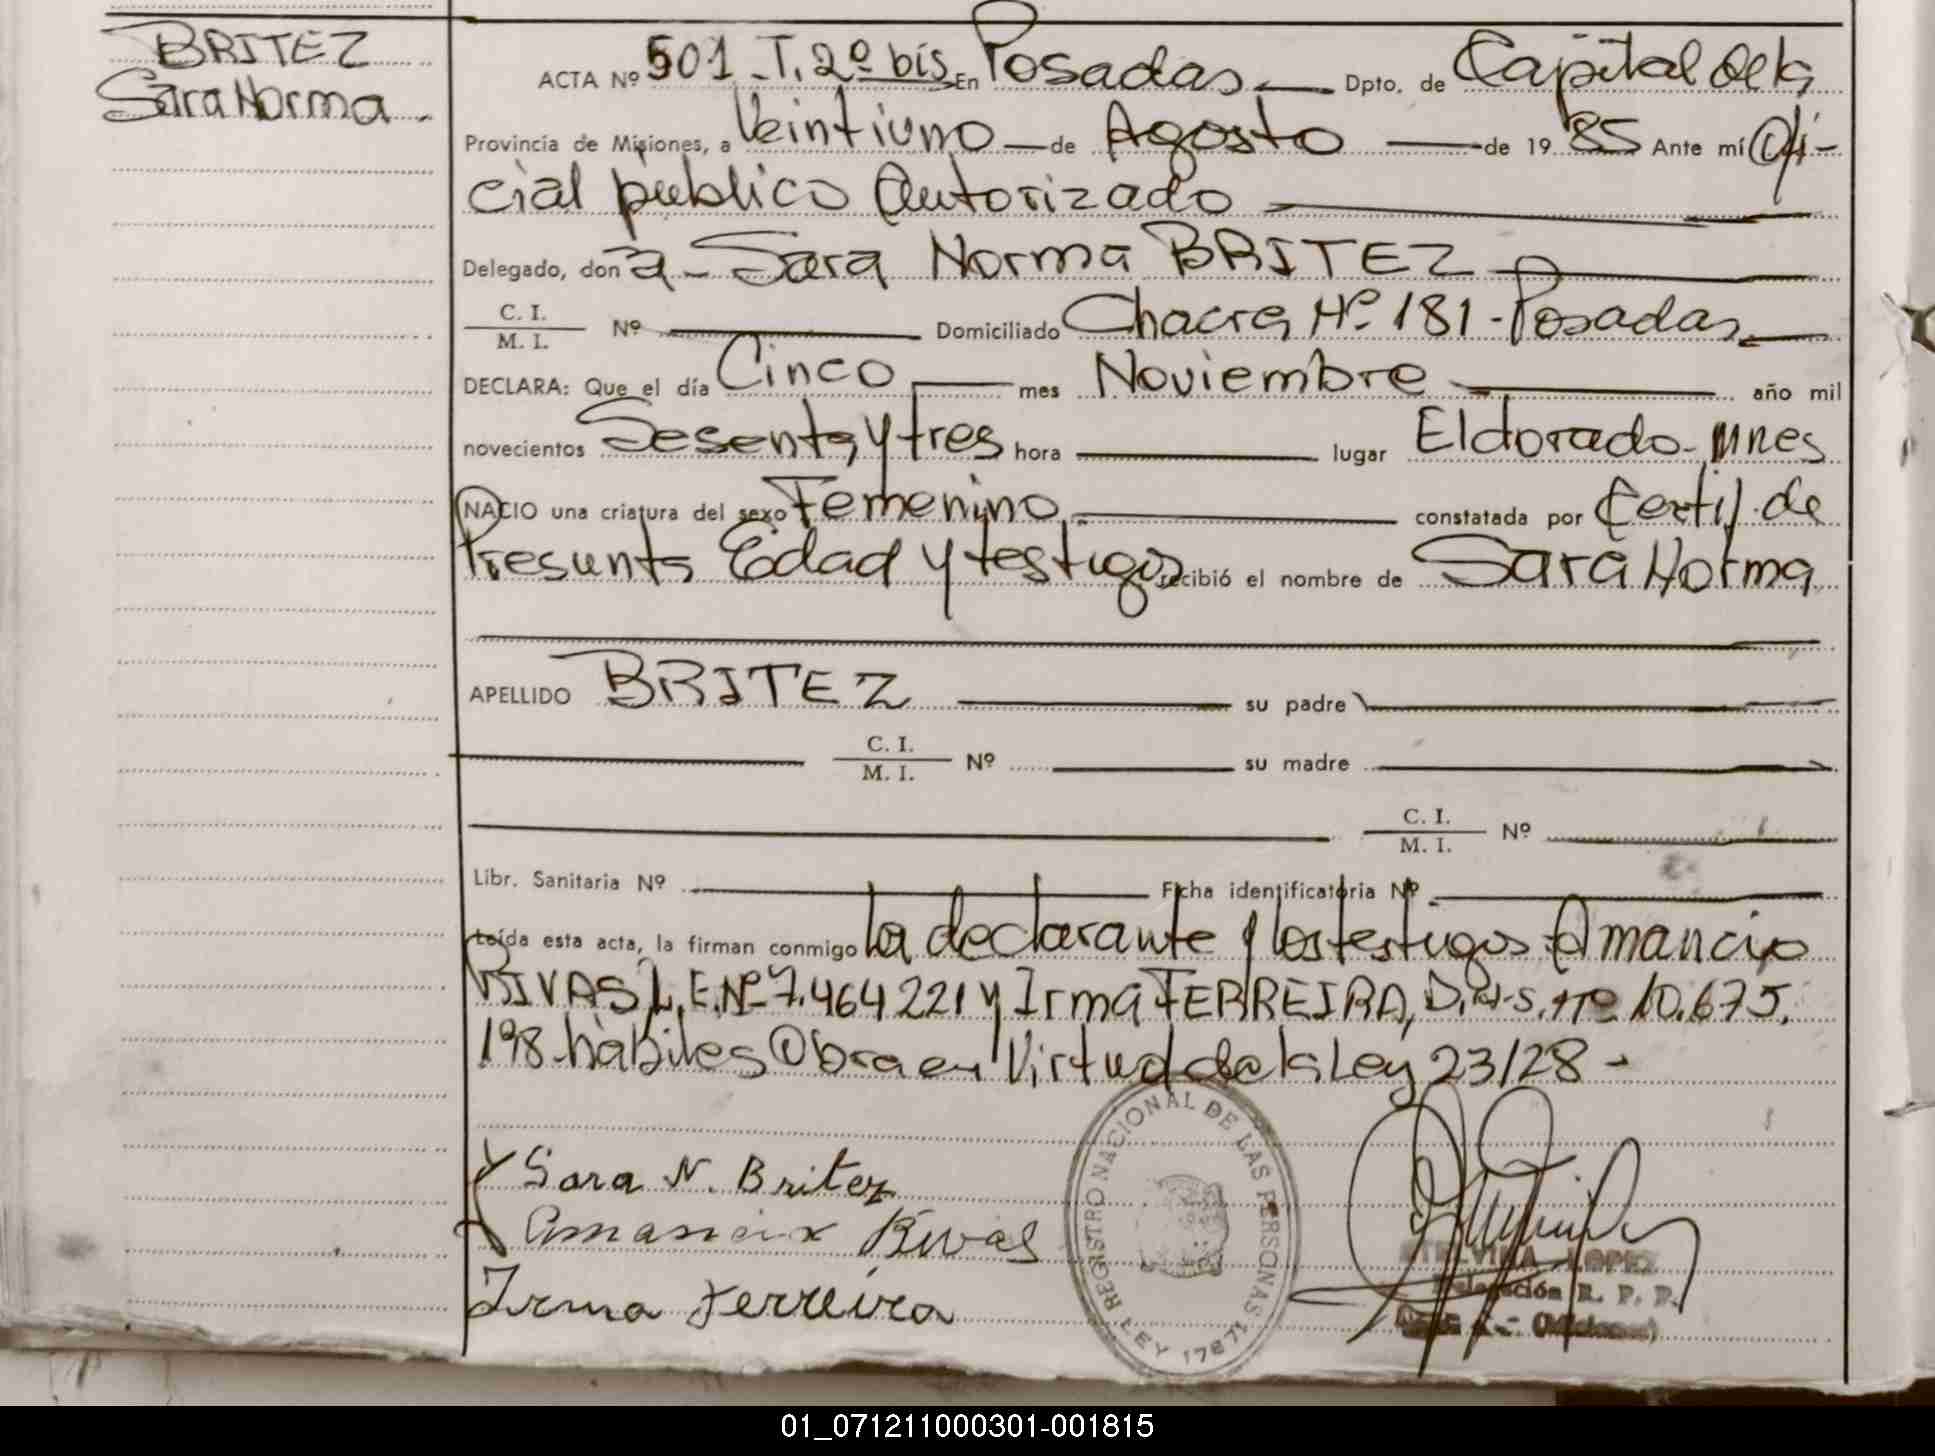 BRITEZ
Sara Norma
ACTA Nº 501 - T. 2º bis En Posadas Dpto. de Capital de la
Provincia de Misiones, a Veintiuno de Agosto de 1985 Ante mí Ofi-
cial público Autorizado
Delegado, don a - Sara Norma BRITEZ
C. I.
M. I. Nº Domiciliado Chacra Nº 181 - Posadas
DECLARA: Que el día Cinco mes Noviembre año mil
novecientos Sesenta y tres hora lugar Eldorado - Mnes
NACIO una criatura del sexo Femenino constatada por Certif. de
Presunta Edad y testigos recibió el nombre de Sara Norma
APELLIDO BRITEZ su padre
C. I.
M. I. Nº su madre
C. I.
M. I. Nº
Libr. Sanitaria Nº Ficha identificatoria Nº
Leída esta acta, la firman conmigo la declarante y los testigos Amancio
RIVAS L.E.Nº 7.464 221 y Irma FERREIRA, Nº 10.675.
198 - hábiles Obra en Virtud de la Ley 23/28 -
Sara N. Britez
Amancio Rivas
Irma Ferreira
REGISTRO NACIONAL DE LAS PERSONAS
LEY 17671
LOPEZ
Delegación R. P. P.
(Misiones)
01_071211000301-001815